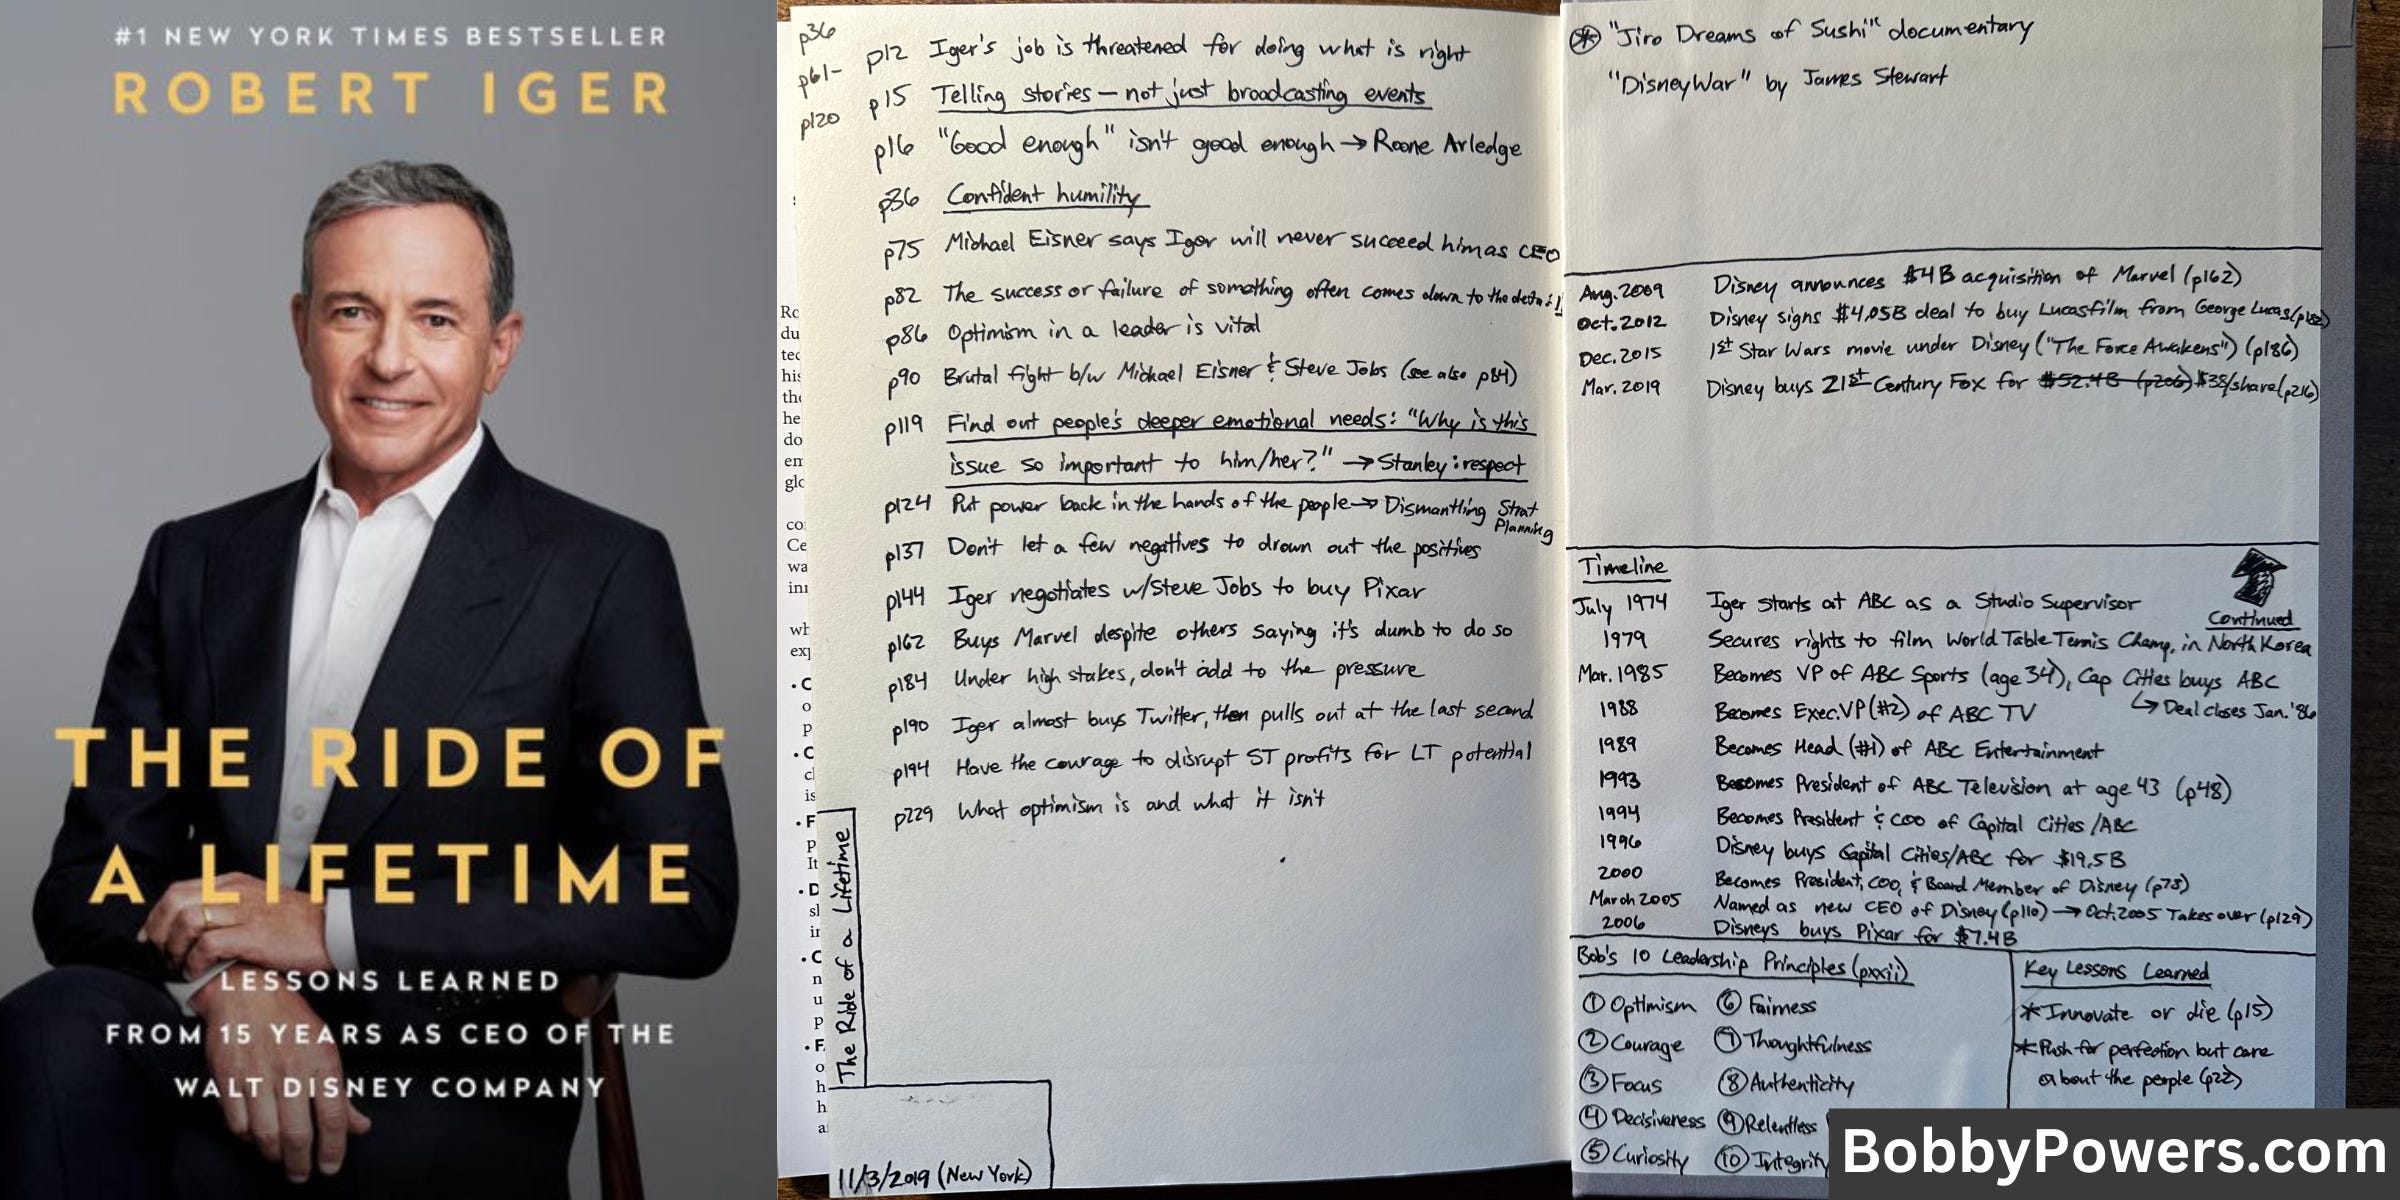 #1 NEW YORK TIMES BESTSELLER
ROBERT IGER
THE RIDE OF
A LIFETIME
LESSONS LEARNED
FROM 15 YEARS AS CEO OF THE
WALT DISNEY COMPANY
p36
p61-
p120
p12 Iger's job is threatened for doing what is right
p15 Telling stories — not just broadcasting events
p16 "Good enough" isn't good enough → Roone Arledge
p36 Confident humility
p75 Michael Eisner says Iger will never succeed him as CEO
p82 The success or failure of something often comes down to the details
p86 Optimism in a leader is vital
p90 Brutal fight b/w Michael Eisner & Steve Jobs (see also p84)
p119 Find out people's deeper emotional needs: "Why is this
issue so important to him/her?" → Stanley: respect
p124 Put power back in the hands of the people → Dismantling Strat
Planning
p137 Don't let a few negatives to drown out the positives
p144 Iger negotiates w/Steve Jobs to buy Pixar
p162 Buys Marvel despite others saying it's dumb to do so
p184 Under high stakes, don't add to the pressure
p190 Iger almost buys Twitter, then pulls out at the last second
p194 Have the courage to disrupt ST profits for LT potential
p229 What optimism is and what it isn't
The Ride of a Lifetime
11/3/2019 (New York)
"Jiro Dreams of Sushi" documentary
"DisneyWar" by James Stewart
Aug. 2009 Disney announces $4B acquisition of Marvel (p162)
Oct. 2012 Disney signs $4.05B deal to buy Lucasfilm from George Lucas
Dec. 2015 1st Star Wars movie under Disney ("The Force Awakens") (p186)
Mar. 2019 Disney buys 21st Century Fox for $52.4B (p206) $38/share (p216)
Timeline
Continued
July 1974 Iger starts at ABC as a Studio Supervisor
1979 Secures rights to film World Table Tennis Champ. in North Korea
Mar. 1985 Becomes VP of ABC Sports (age 34), Cap Cities buys ABC
↳ Deal closes Jan. '86
1988 Becomes Exec. VP (#2) of ABC TV
1989 Becomes Head (#1) of ABC Entertainment
1993 Becomes President of ABC Television at age 43 (p48)
1994 Becomes President & COO of Capital Cities/ABC
1996 Disney buys Capital Cities/ABC for $19.5B
2000 Becomes President, COO, & Board Member of Disney (p73)
March 2005 Named as new CEO of Disney (p110) → Oct. 2005 Takes over (p129)
2006 Disneys buys Pixar for $7.4B
Bob's 10 Leadership Principles (pxxii)
① Optimism ⑥ Fairness
② Courage ⑦ Thoughtfulness
③ Focus ⑧ Authenticity
④ Decisiveness ⑨ Relentless
⑤ Curiosity ⑩ Integrity
Key Lessons Learned
* Innovate or die (p15)
* Push for perfection but care
about the people (p22)
BobbyPowers.com